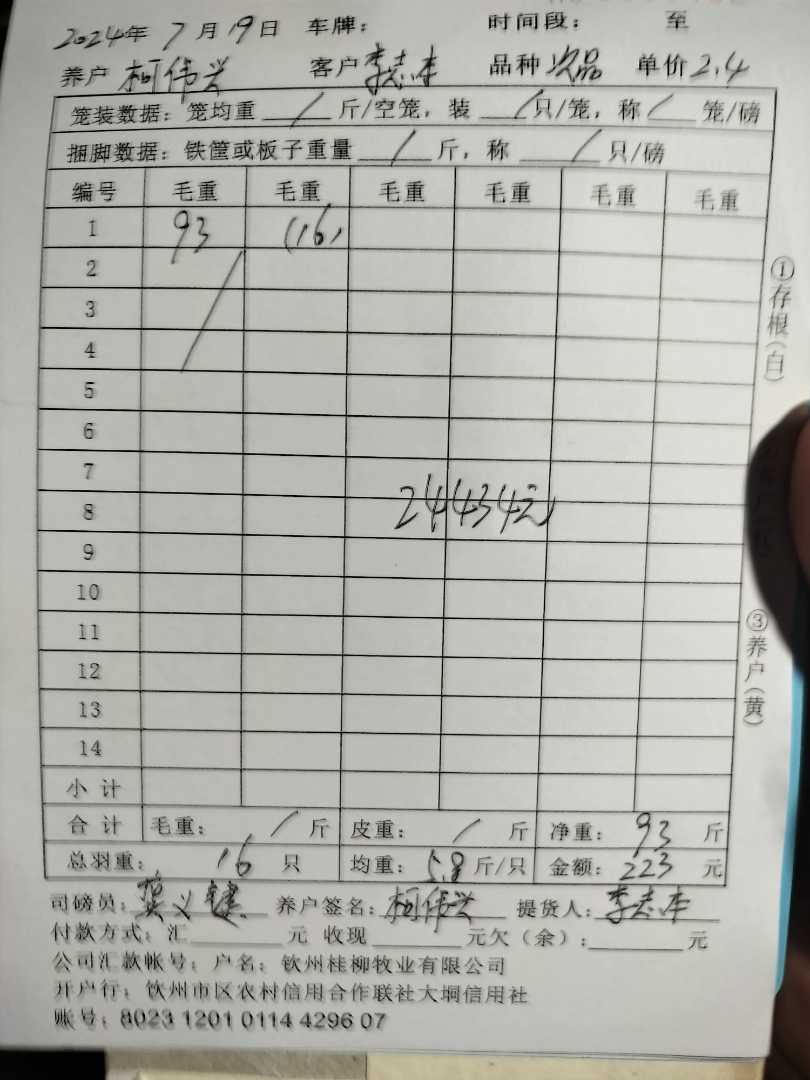 2024年 7月19日 车牌: 时间段: 至
养户 柯伟兴 客户 李志本 品种 次品 单价 2.4
笼装数据: 笼均重 / 斤/空笼, 装 / 只/笼, 称 / 笼/磅
捆脚数据: 铁筐或板子重量 / 斤, 称 / 只/磅
编号 毛重 毛重 毛重 毛重 毛重 毛重
1 93 (16)
2
3
4
5
6
7
8 24434元
9
10
11
12
13
14
小计
合计 毛重: / 斤 皮重: / 斤 净重: 93 斤
总羽重: 16 只 均重: 5.8 斤/只 金额: 223 元
司磅员: 养户签名: 柯伟兴 提货人: 李志本
付款方式: 汇 元 收现 元欠(余): 元
公司汇款帐号: 户名: 钦州桂柳牧业有限公司
开户行: 钦州市区农村信用合作联社大垌信用社
账号: 8023 1201 0114 4296 07
①存根(白)
③养户(黄)